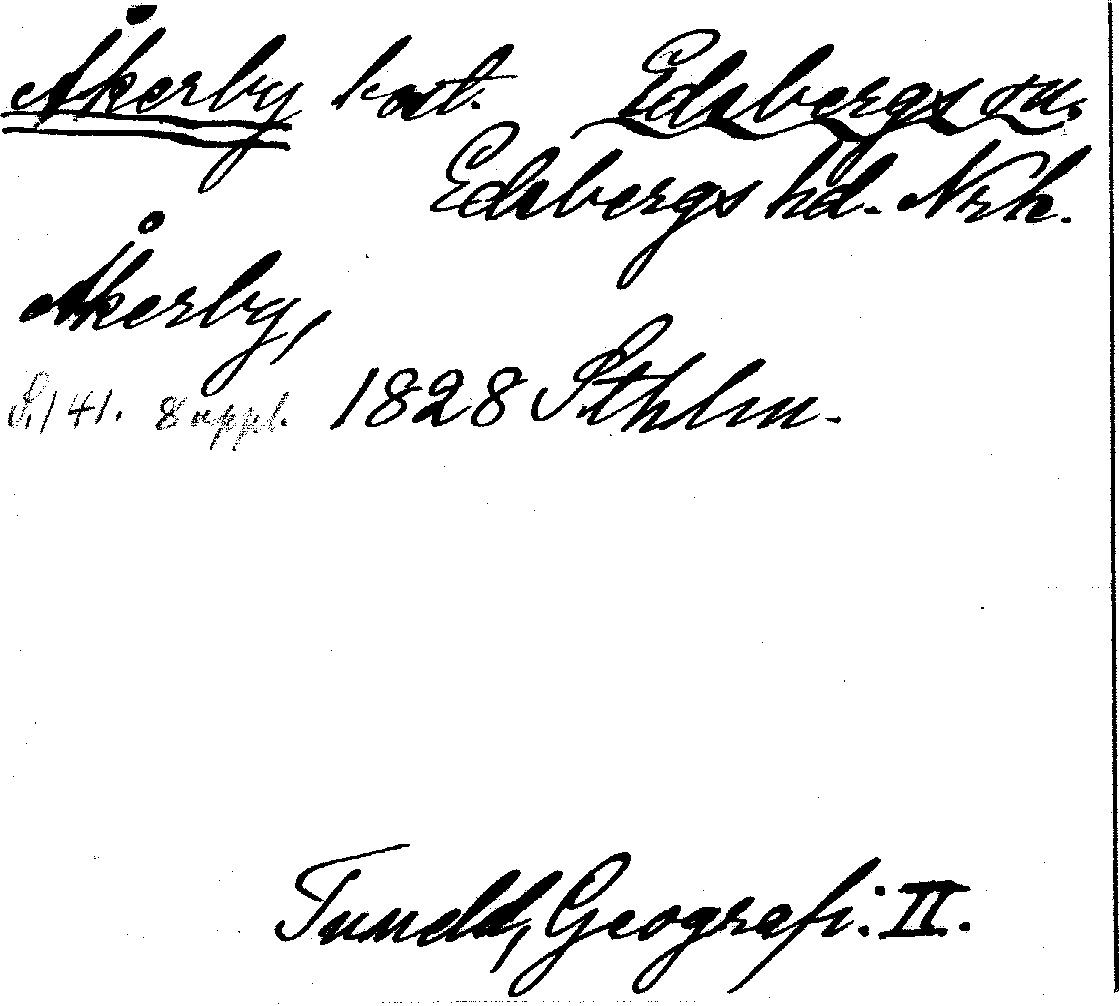 Åkerby kat. Edsbergs sn.
Edsbergs hd. Nrk.
Åkerby,
S. 141. 8 uppl. 1828 Sthlm.
Tuneld, Geografi: II.